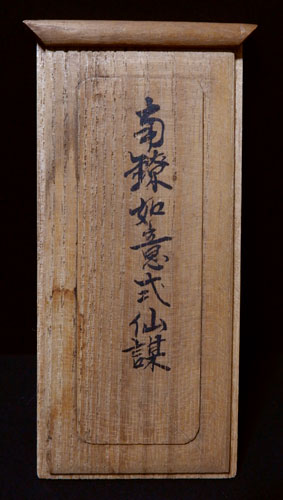 南鐐如意式仙謀